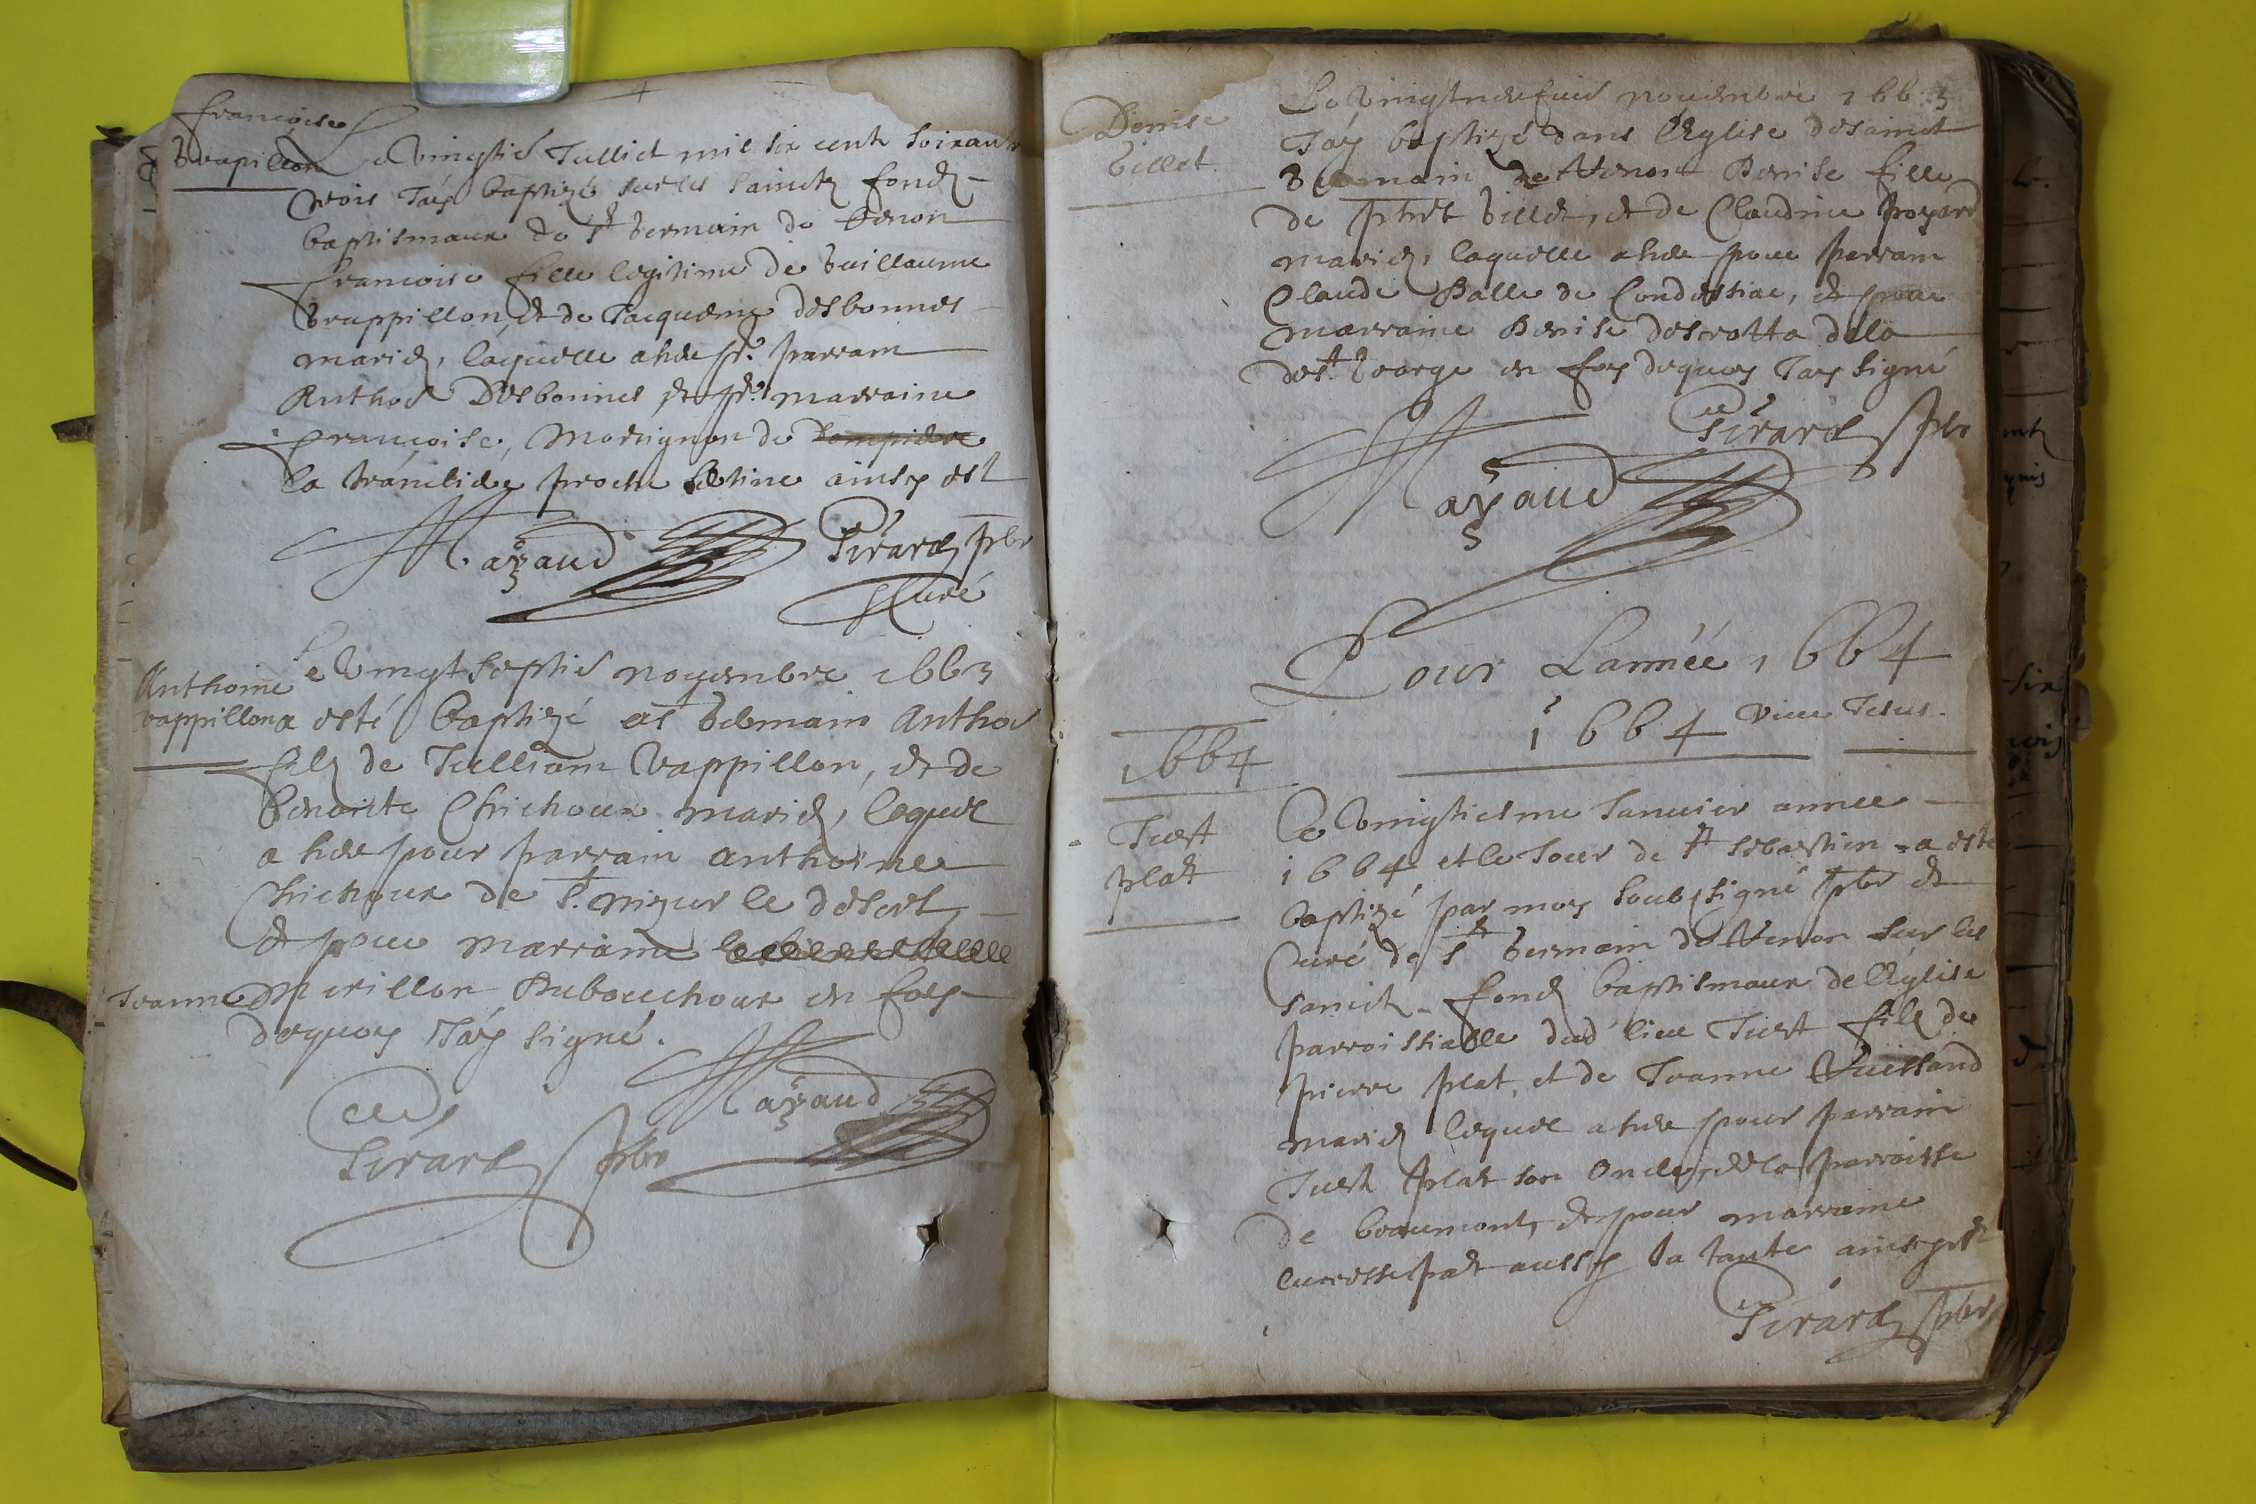 françoise
Grapillon
Le vingtie Julliet mil six cent soixante
trois J'ay baptizé sur les sainctz fondz
baptismaux de St Germain de Renon
francoise fille legitime de Guillaume
Grappillon, et de Jacqueme Desbonnes
mariez, laquelle a heu pr. parrain
Anthoe Desbonnes et pr. marraine
françoise, Morignon de
la tranclide proche ainsy est
Mayaud Girard pbr
Curé
Anthoine
Vappillon
Le vingt septie novembre 1663
a esté baptizé a St Germain Anthoe
filz de Jullian Vappillon, et de
Benoiste Chichoux mariez, lequel
a heu pour parrain anthoine
Chichoux de St. nizier le desert,
et pour marraine
Jeanne Merillon Dubouchoux en foy
dequoy J'ay signé.
Girard pbr Mayaud
Denise
Billet
Le vingt novembre 1663
J'ay baptizé dans l'Eglise de sainct
Germain de Renon Denise fille
de Billet, et de Claudine poyard
mariez, laquelle a heu pour parrain
Claude Balle de Condessiac, et pour
marraine Denise
de St. George en foy dequoy J'ay signé
Girard pbr
Mayaud
Pour Lannéé 1664
1664 vive Jesus.
1664
Just
plat
Le vingtiesme Januier annee
1664 et le Jour de St sebastien a esté
baptizé par moy soubsigné pbr et
Curé de St Germain de Renon sur les
sainctz fondz baptismaux de l'Eglise
parroissialle dud lieu Just filz de
pierre plat, et de Jeanne
mariez lequel a heu pour parrain
Just plat son Oncle, de la parroisse
de beaumont, et pour marraine
aussy sa tante ainsy est
Girard pbr